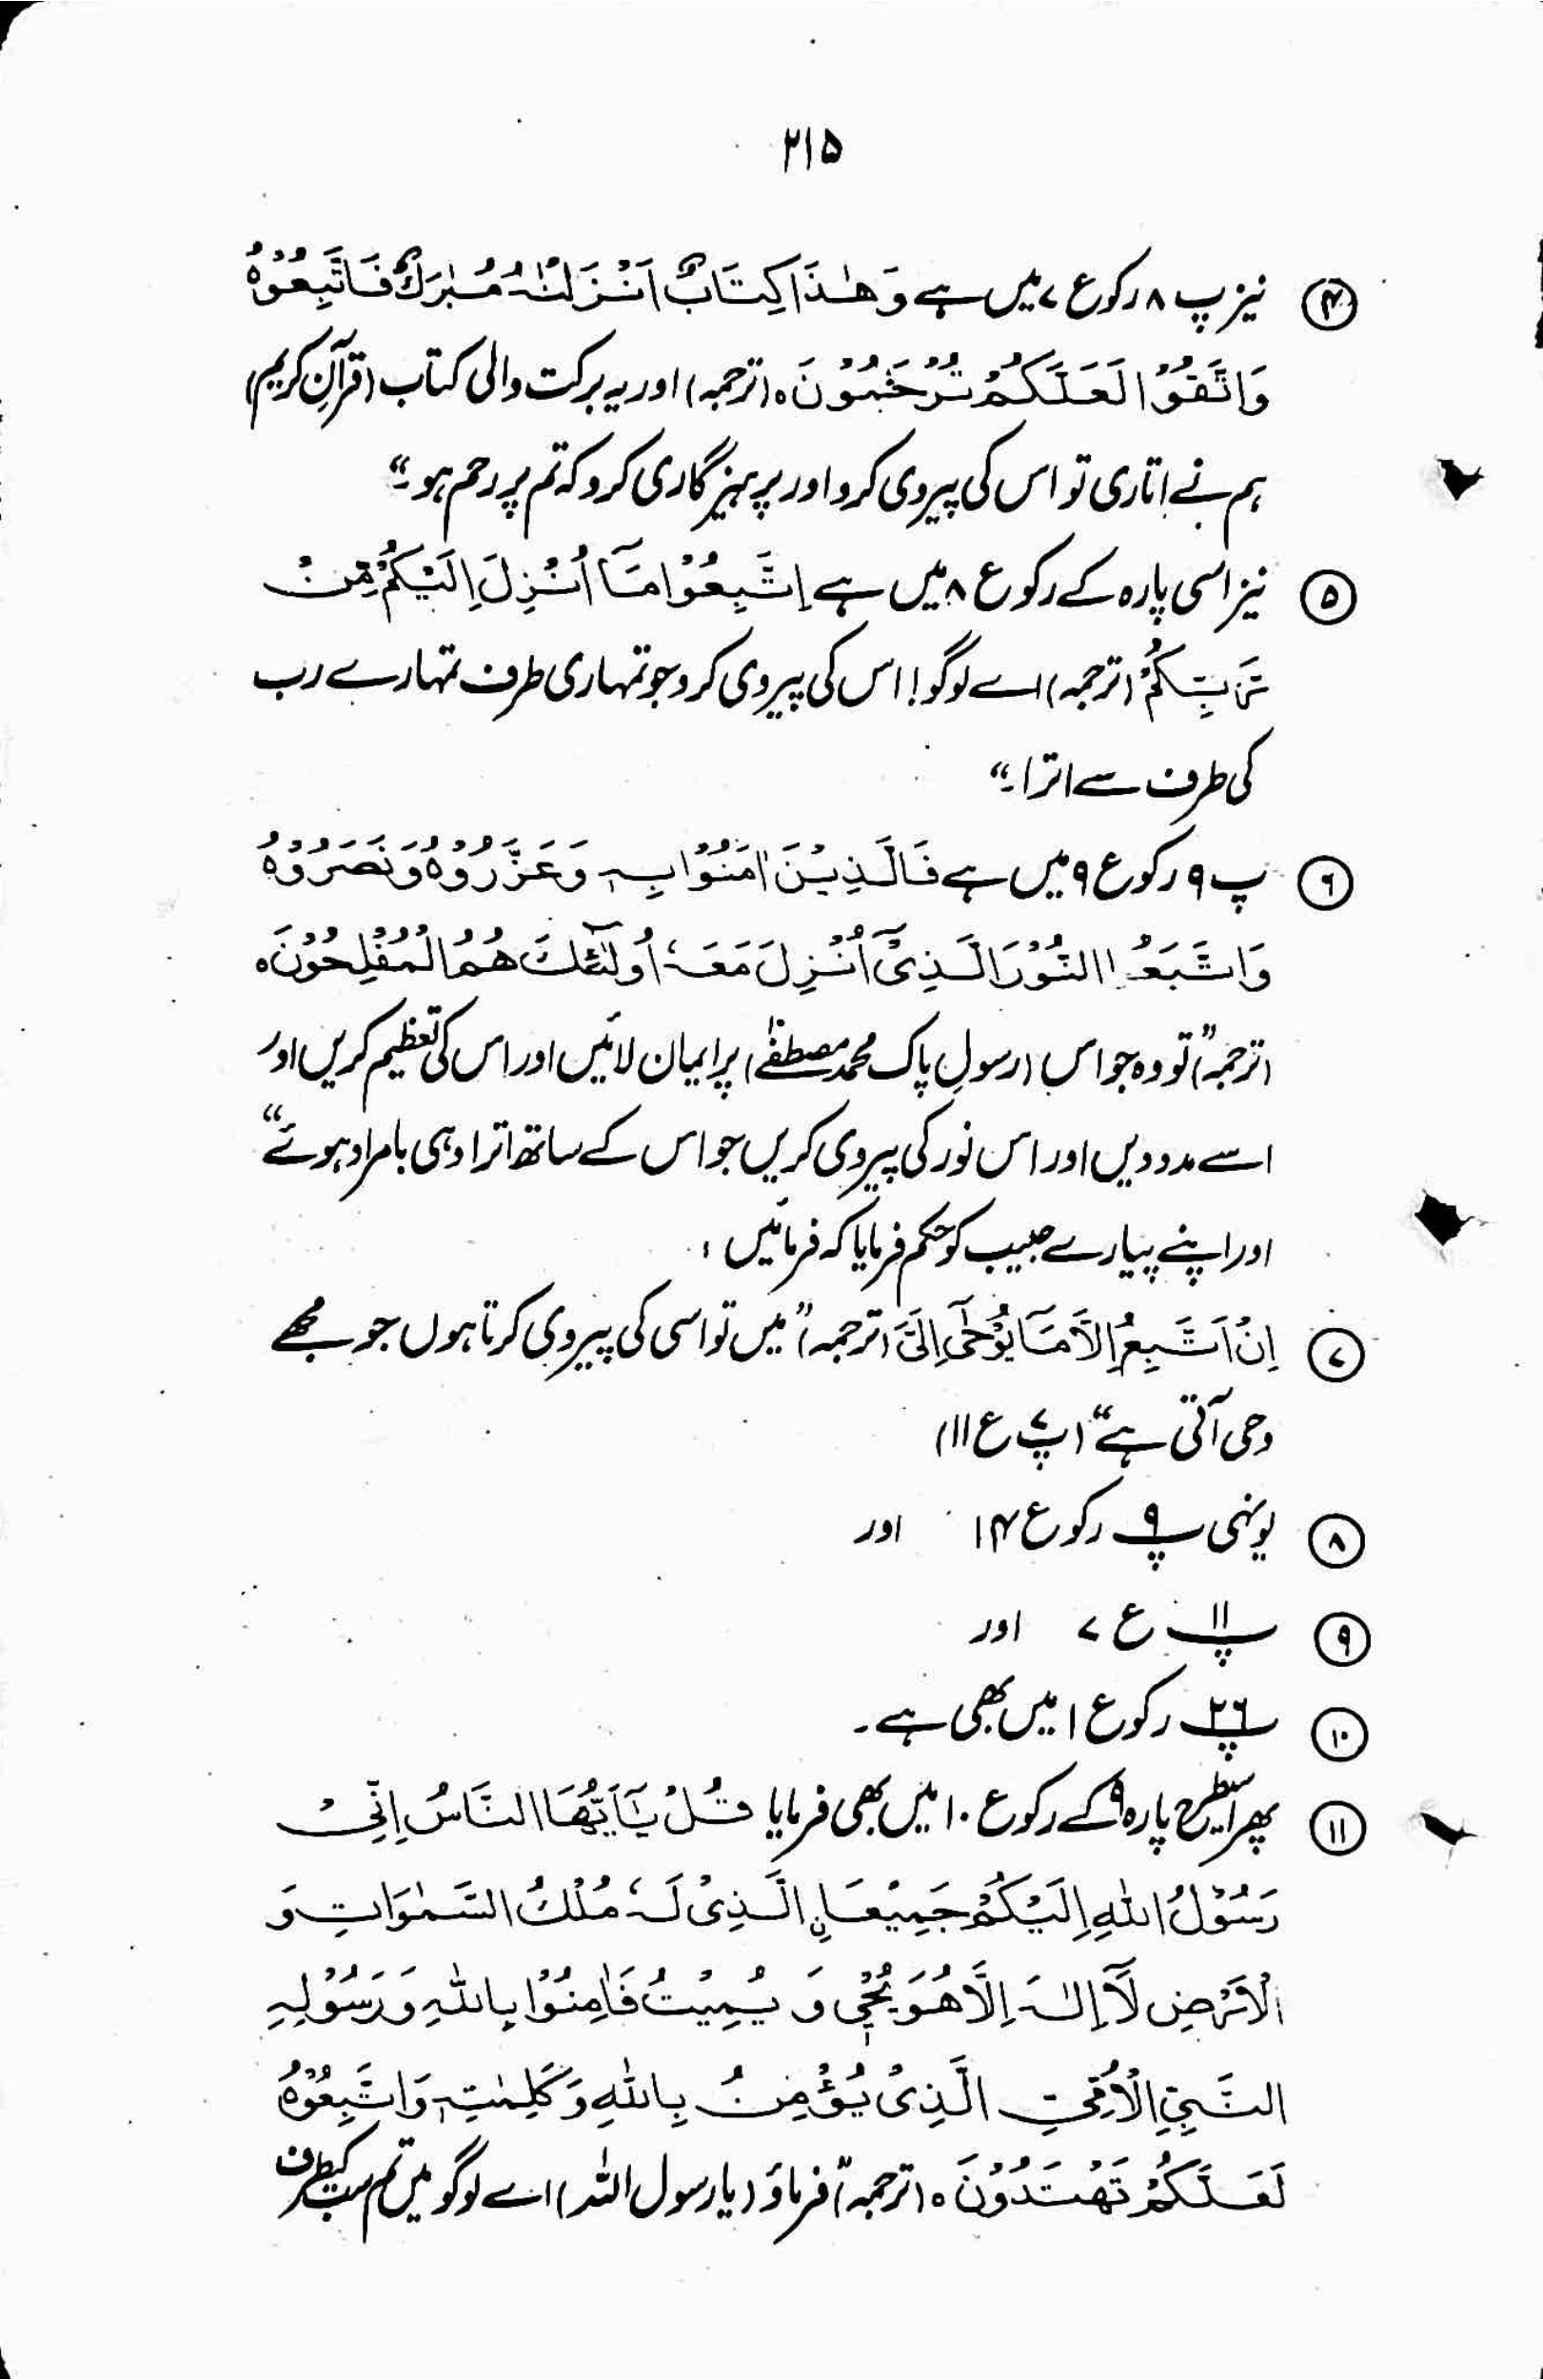 ۲۱۵
④ نیز پ ۸ رکوع ۷ میں ہے وَهٰذَا كِتَابٌ اَنْزَلْنٰهُ مُبٰرَكٌ فَاتَّبِعُوْهُ
وَاتَّقُوْا لَعَلَّكُمْ تُرْحَمُوْنَ ه (ترجمہ) اور یہ برکت والی کتاب (قرآنِ کریم)
ہم نے اتاری تو اس کی پیروی کرو اور پرہیزگاری کرو کہ تم پر رحم ہو۔“
⑤ نیز اسی پارہ کے رکوع ۸ میں ہے اِتَّبِعُوْا مَآ اُنْزِلَ اِلَيْكُمْ مِّنْ
رَّبِّكُمْ (ترجمہ) اے لوگو! اس کی پیروی کرو جو تمہاری طرف تمہارے رب
کی طرف سے اترا۔“
⑥ پ ۹ رکوع ۹ میں ہے فَالَّذِيْنَ اٰمَنُوْا بِهٖ وَعَزَّرُوْهُ وَنَصَرُوْهُ
وَاتَّبَعُوا النُّوْرَ الَّذِىْٓ اُنْزِلَ مَعَهٗ اُولٰٓئِكَ هُمُ الْمُفْلِحُوْنَ ه
(ترجمہ) ”تو وہ جو اس (رسولِ پاک محمد مصطفےٰ) پر ایمان لائیں اور اس کی تعظیم کریں اور
اسے مدد دیں اور اس نور کی پیروی کریں جو اس کے ساتھ اترا وہی بامراد ہوئے“
اور اپنے پیارے حبیب کو حکم فرمایا کہ فرمائیں :
⑦ اِنْ اَتَّبِعُ اِلَّا مَا يُوْحٰٓى اِلَىَّ (ترجمہ) ”میں تو اسی کی پیروی کرتا ہوں جو مجھے
وحی آتی ہے“ (پ ۷ ع ۱۱)
⑧ یونہی پ ۹ رکوع ۱۴ اور
⑨ پ ۱۱ ع ۷ اور
⑩ پ ۲۶ رکوع ۱ میں بھی ہے۔
⑪ پھر اسیطرح پارہ ۹ کے رکوع ۱۰ میں بھی فرمایا قُلْ يٰٓاَيُّهَا النَّاسُ اِنِّىْ
رَسُوْلُ اللهِ اِلَيْكُمْ جَمِيْعَانِ الَّذِىْ لَهٗ مُلْكُ السَّمٰوَاتِ وَ
الْاَرْضِ لَآ اِلٰهَ اِلَّا هُوَ يُحْيٖ وَ يُمِيْتُ فَاٰمِنُوْا بِاللهِ وَرَسُوْلِهِ
النَّبِىِّ الْاُمِّىِّ الَّذِىْ يُؤْمِنُ بِاللهِ وَكَلِمٰتِهٖ وَاتَّبِعُوْهُ
لَعَلَّكُمْ تَهْتَدُوْنَ ه (ترجمہ) ”فرماؤ (یا رسول اللہ) اے لوگو میں تم سب کیطرف